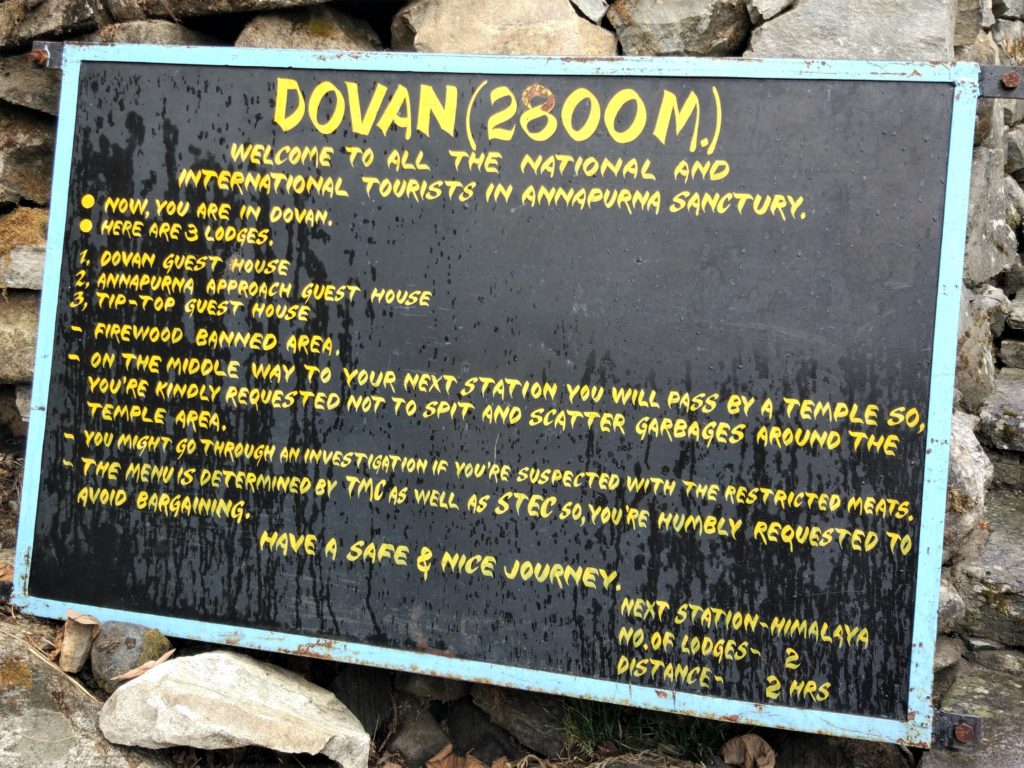 DOVAN (2800M.)
WELCOME TO ALL THE NATIONAL AND
INTERNATIONAL TOURISTS IN ANNAPURNA SANCTURY.
● NOW, YOU ARE IN DOVAN.
● HERE ARE 3 LODGES.
1, DOVAN GUEST HOUSE
2, ANNAPURNA APPROACH GUEST HOUSE
3, TIP-TOP GUEST HOUSE
- FIREWOOD BANNED AREA.
- ON THE MIDDLE WAY TO YOUR NEXT STATION YOU WILL PASS BY A TEMPLE SO,
YOU'RE KINDLY REQUESTED NOT TO SPIT AND SCATTER GARBAGES AROUND THE
TEMPLE AREA.
- YOU MIGHT GO THROUGH AN INVESTIGATION IF YOU'RE SUSPECTED WITH THE RESTRICTED MEATS.
- THE MENU IS DETERMINED BY TMC AS WELL AS STEC SO, YOU'RE HUMBLY REQUESTED TO
AVOID BARGAINING.
HAVE A SAFE & NICE JOURNEY.
NEXT STATION-HIMALAYA
NO. OF LODGES- 2
DISTANCE- 2 HRS